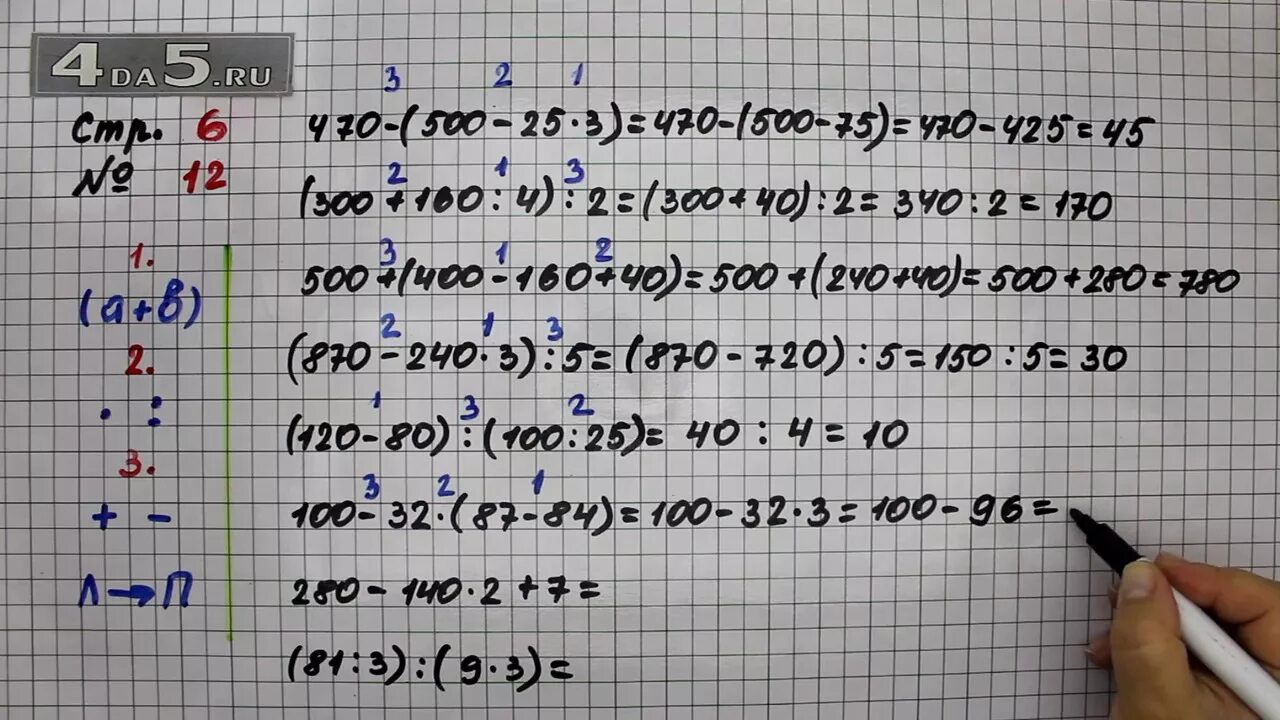 4DA5.RU
Стр. 6
№ 12
1.
(а+в)
2.
· :
3.
+ -
Л→П
3 2 1
470-(500-25·3)=470-(500-75)=470-425=45
2 1 3
(300+160:4):2=(300+40):2=340:2=170
3 1 2
500+(400-160+40)=500+(240+40)=500+280=780
2 1 3
(870-240·3):5=(870-720):5=150:5=30
1 3 2
(120-80):(100:25)=40:4=10
3 2 1
100-32·(87-84)=100-32·3=100-96=
280-140·2+7=
(81:3):(9·3)=